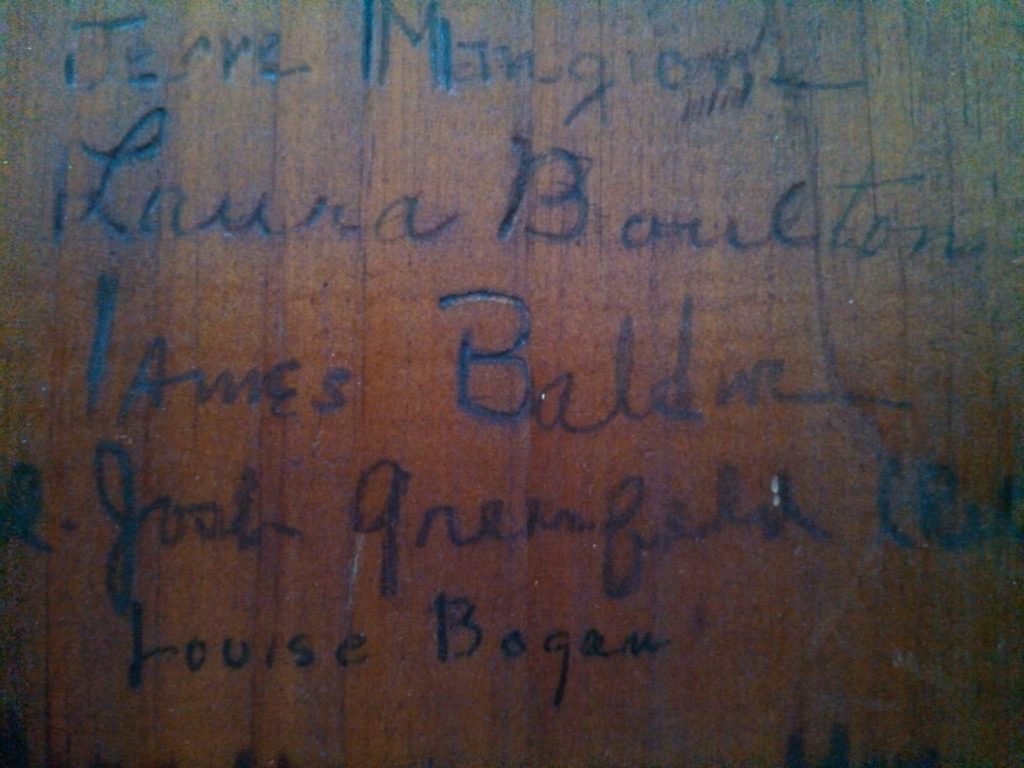 Jerre Mangione
Laura Boulton
James Baldwin
Josh Greenfeld
Louise Bogan